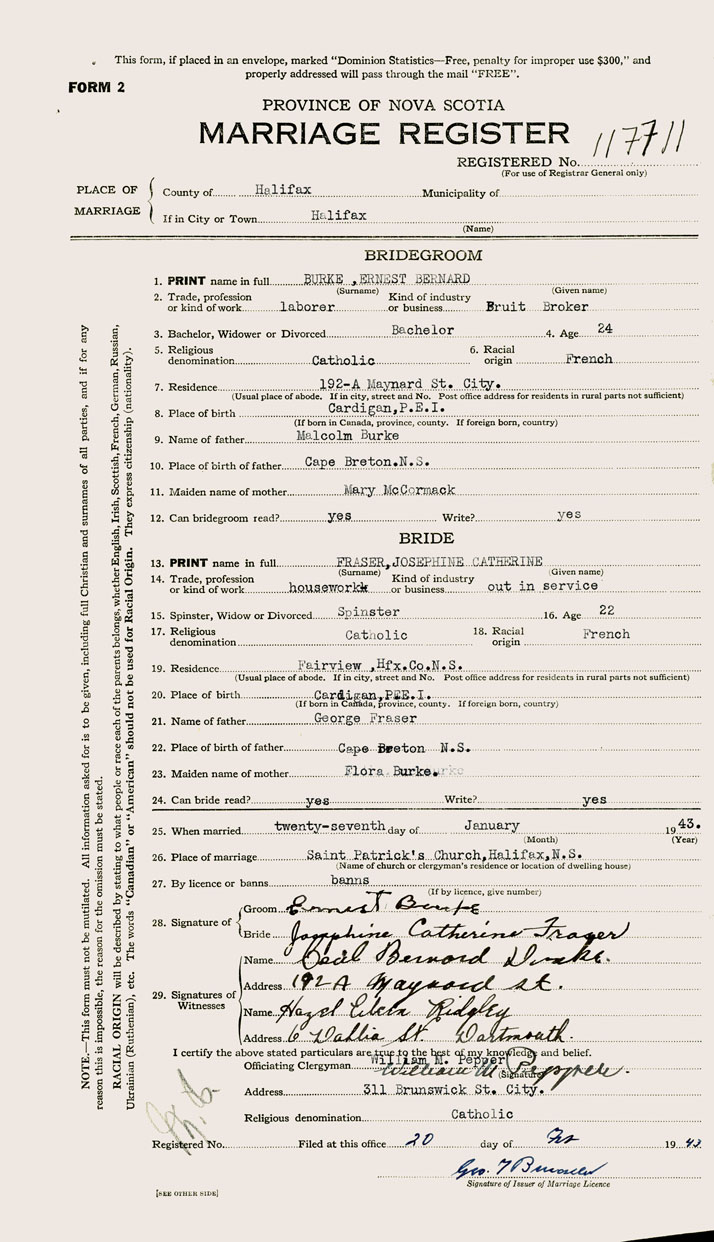 This form, if placed in an envelope, marked "Dominion Statistics—Free, penalty for improper use $300," and
properly addressed will pass through the mail "FREE".
FORM 2
PROVINCE OF NOVA SCOTIA
MARRIAGE REGISTER
REGISTERED No. 117711
(For use of Registrar General only)
PLACE OF MARRIAGE
County of Halifax Municipality of
If in City or Town Halifax
(Name)
BRIDEGROOM
1. PRINT name in full BURKE ,ERNEST BERNARD
(Surname) (Given name)
2. Trade, profession or kind of work laborer Kind of industry or business Fruit Broker
3. Bachelor, Widower or Divorced Bachelor 4. Age 24
5. Religious denomination Catholic 6. Racial origin French
7. Residence 192-A Maynard St. City.
(Usual place of abode. If in city, street and No. Post office address for residents in rural parts not sufficient)
8. Place of birth Cardigan,P.E.I.
(If born in Canada, province, county. If foreign born, country)
9. Name of father Malcolm Burke
10. Place of birth of father Cape Breton.N.S.
11. Maiden name of mother Mary McCormack
12. Can bridegroom read? yes Write? yes
BRIDE
13. PRINT name in full FRASER,JOSEPHINE CATHERINE
(Surname) (Given name)
14. Trade, profession or kind of work housework Kind of industry or business out in service
15. Spinster, Widow or Divorced Spinster 16. Age 22
17. Religious denomination Catholic 18. Racial origin French
19. Residence Fairview ,Hfx.Co.N.S.
(Usual place of abode. If in city, street and No. Post office address for residents in rural parts not sufficient)
20. Place of birth Cardigan,PEE.I.
(If born in Canada, province, county. If foreign born, country)
21. Name of father George Fraser
22. Place of birth of father Cape Breton N.S.
23. Maiden name of mother Flora Burke.
24. Can bride read? yes Write? yes
25. When married twenty-seventh day of January 1943.
(Month) (Year)
26. Place of marriage Saint Patrick's Church,Halifax,N.S.
(Name of church or clergyman's residence or location of dwelling house)
27. By licence or banns banns
(If by licence, give number)
28. Signature of
Groom Ernest Burke
Bride Josephine Catherine Fraser
29. Signatures of Witnesses
Name Cecil Bernard
Address 192A Maynard st.
Name Hazel Eileen Ridgley
Address 6 Dahlia St. Dartmouth.
I certify the above stated particulars are true to the best of my knowledge and belief.
Officiating Clergyman William M. Pepper
William M Pepper.
(Signature)
Address 311 Brunswick St. City.
Religious denomination Catholic
Registered No. Filed at this office 20 day of 1943
Geo. T
Signature of Issuer of Marriage Licence
[SEE OTHER SIDE]
NOTE.—This form must not be mutilated. All information asked for is to be given, including full Christian and surnames of all parties, and if for any
reason this is impossible, the reason for the omission must be stated.
RACIAL ORIGIN will be described by stating to what people or race each of the parents belongs, whether English, Irish, Scottish, French, German, Russian,
Ukrainian (Ruthenian), etc. The words "Canadian" or "American" should not be used for Racial Origin. They express citizenship (nationality).